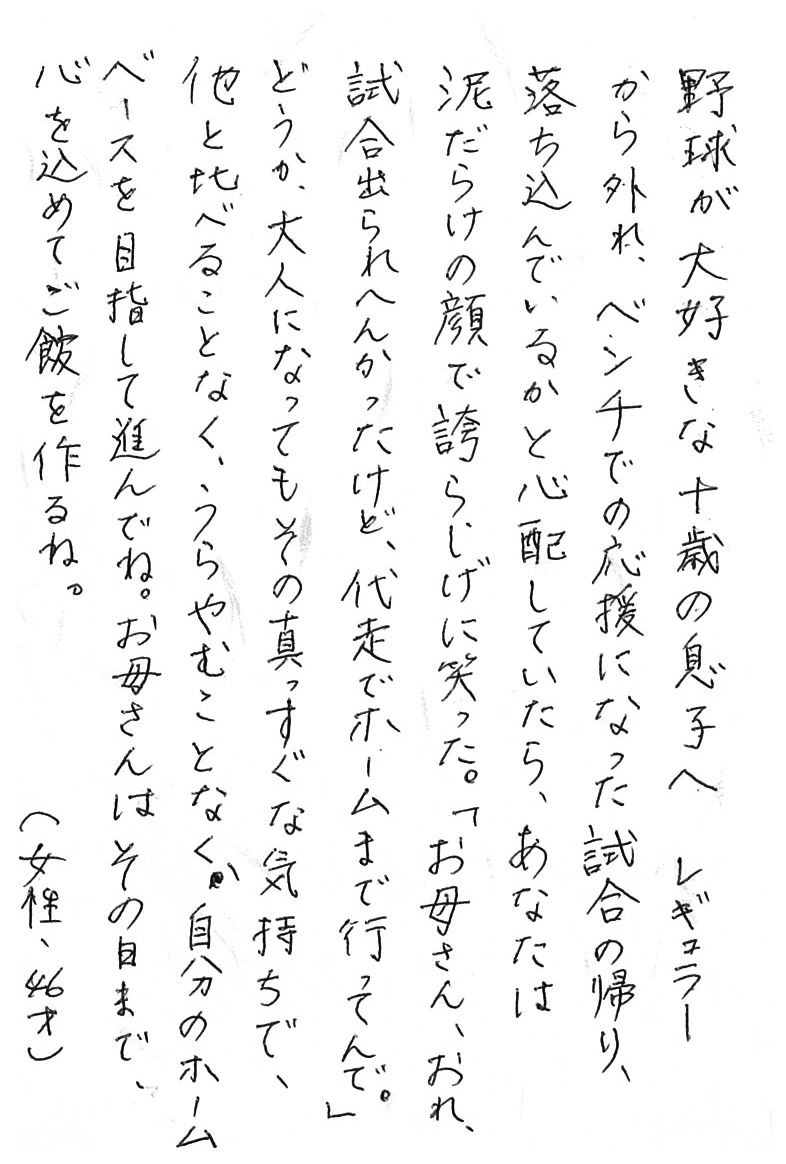 野球が大好きな十歳の息子へ　レギュラー
から外れ、ベンチでの応援になった試合の帰り、
落ち込んでいるかと心配していたら、あなたは
泥だらけの顔で誇らしげに笑った。「お母さん、おれ、
試合出られへんかったけど、代走でホームまで行ってんで。」
どうか、大人になってもその真っすぐな気持ちで、
他と比べることなく、うらやむことなく、自分のホーム
ベースを目指して進んでね。お母さんはその日まで、
心を込めてご飯を作るね。
（女性、46才）